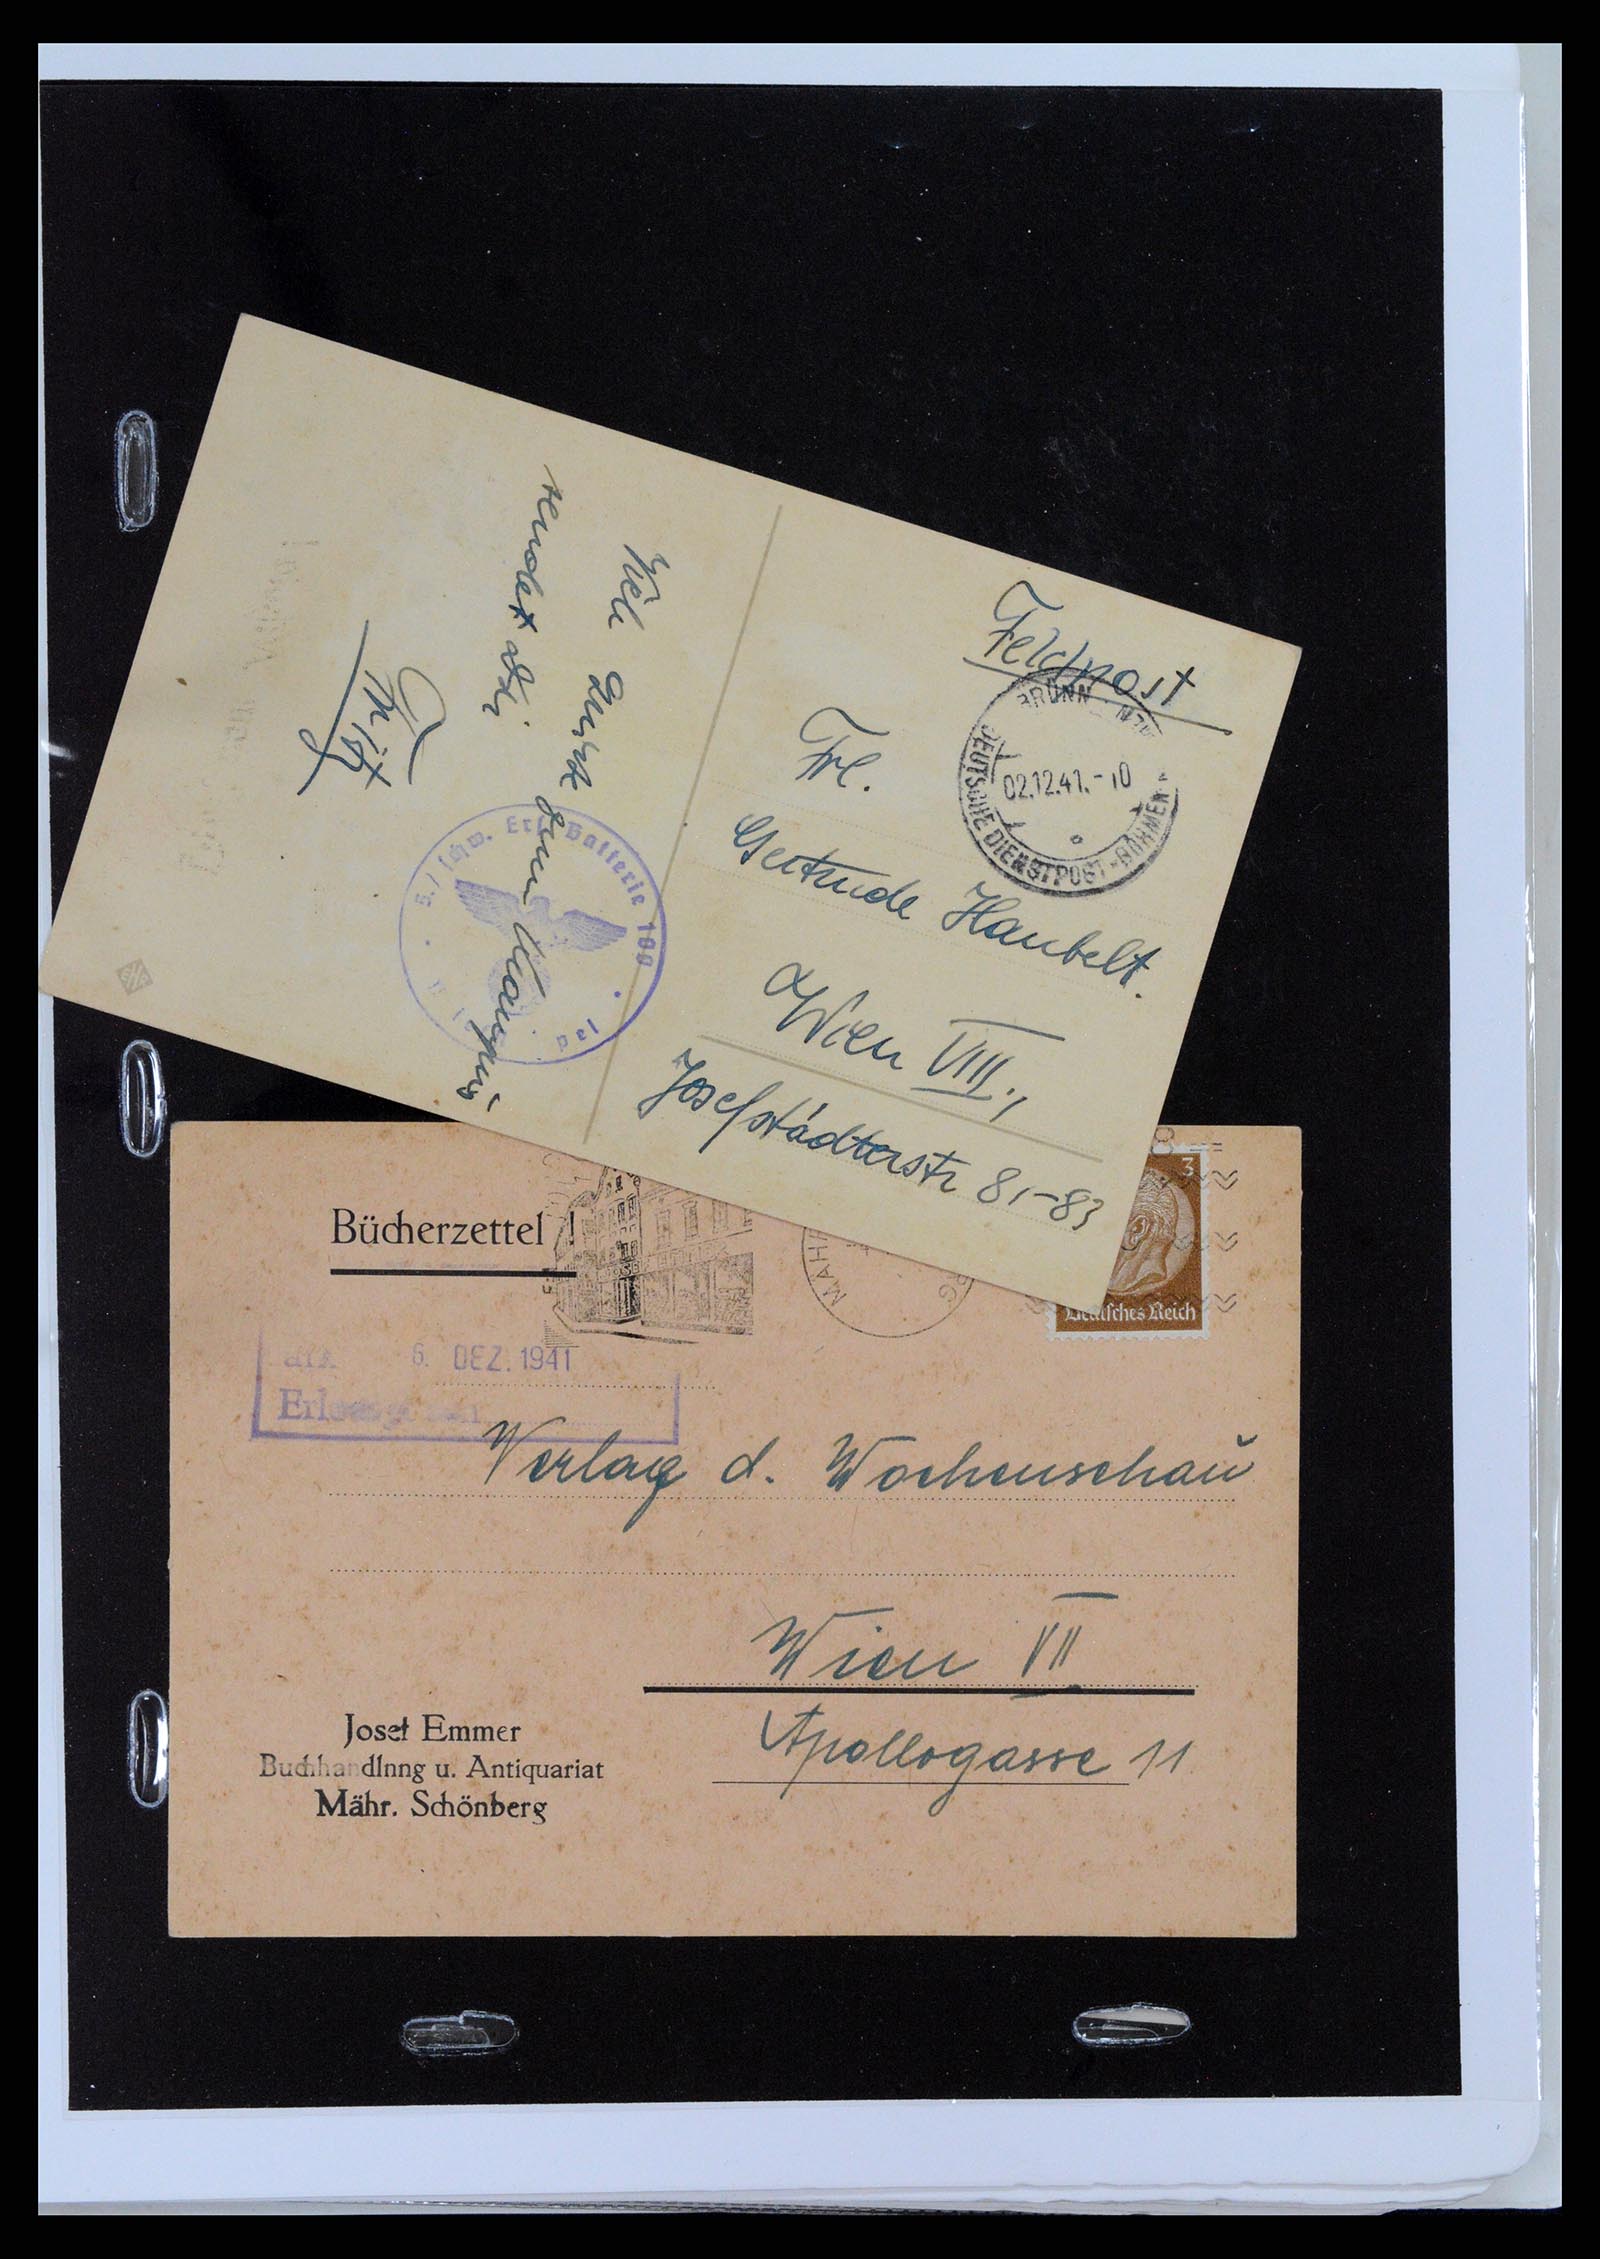 Feldpost
BRÜNN
02.12.41.-10
DEUTSCHE DIENSTPOST-BÖHMEN
Frl.
Gertrude Haubelt.
Wien VIII.,
Josefstädterstr 81-83
Viel
zum
sendet
Batterie
Bücherzettel !
3
Deutsches Reich
6. DEZ. 1941
Verlag d. Wochenschau
Wien VII
Apollogasse 11
Josef Emmer
Buchhandlnng u. Antiquariat
Mähr. Schönberg